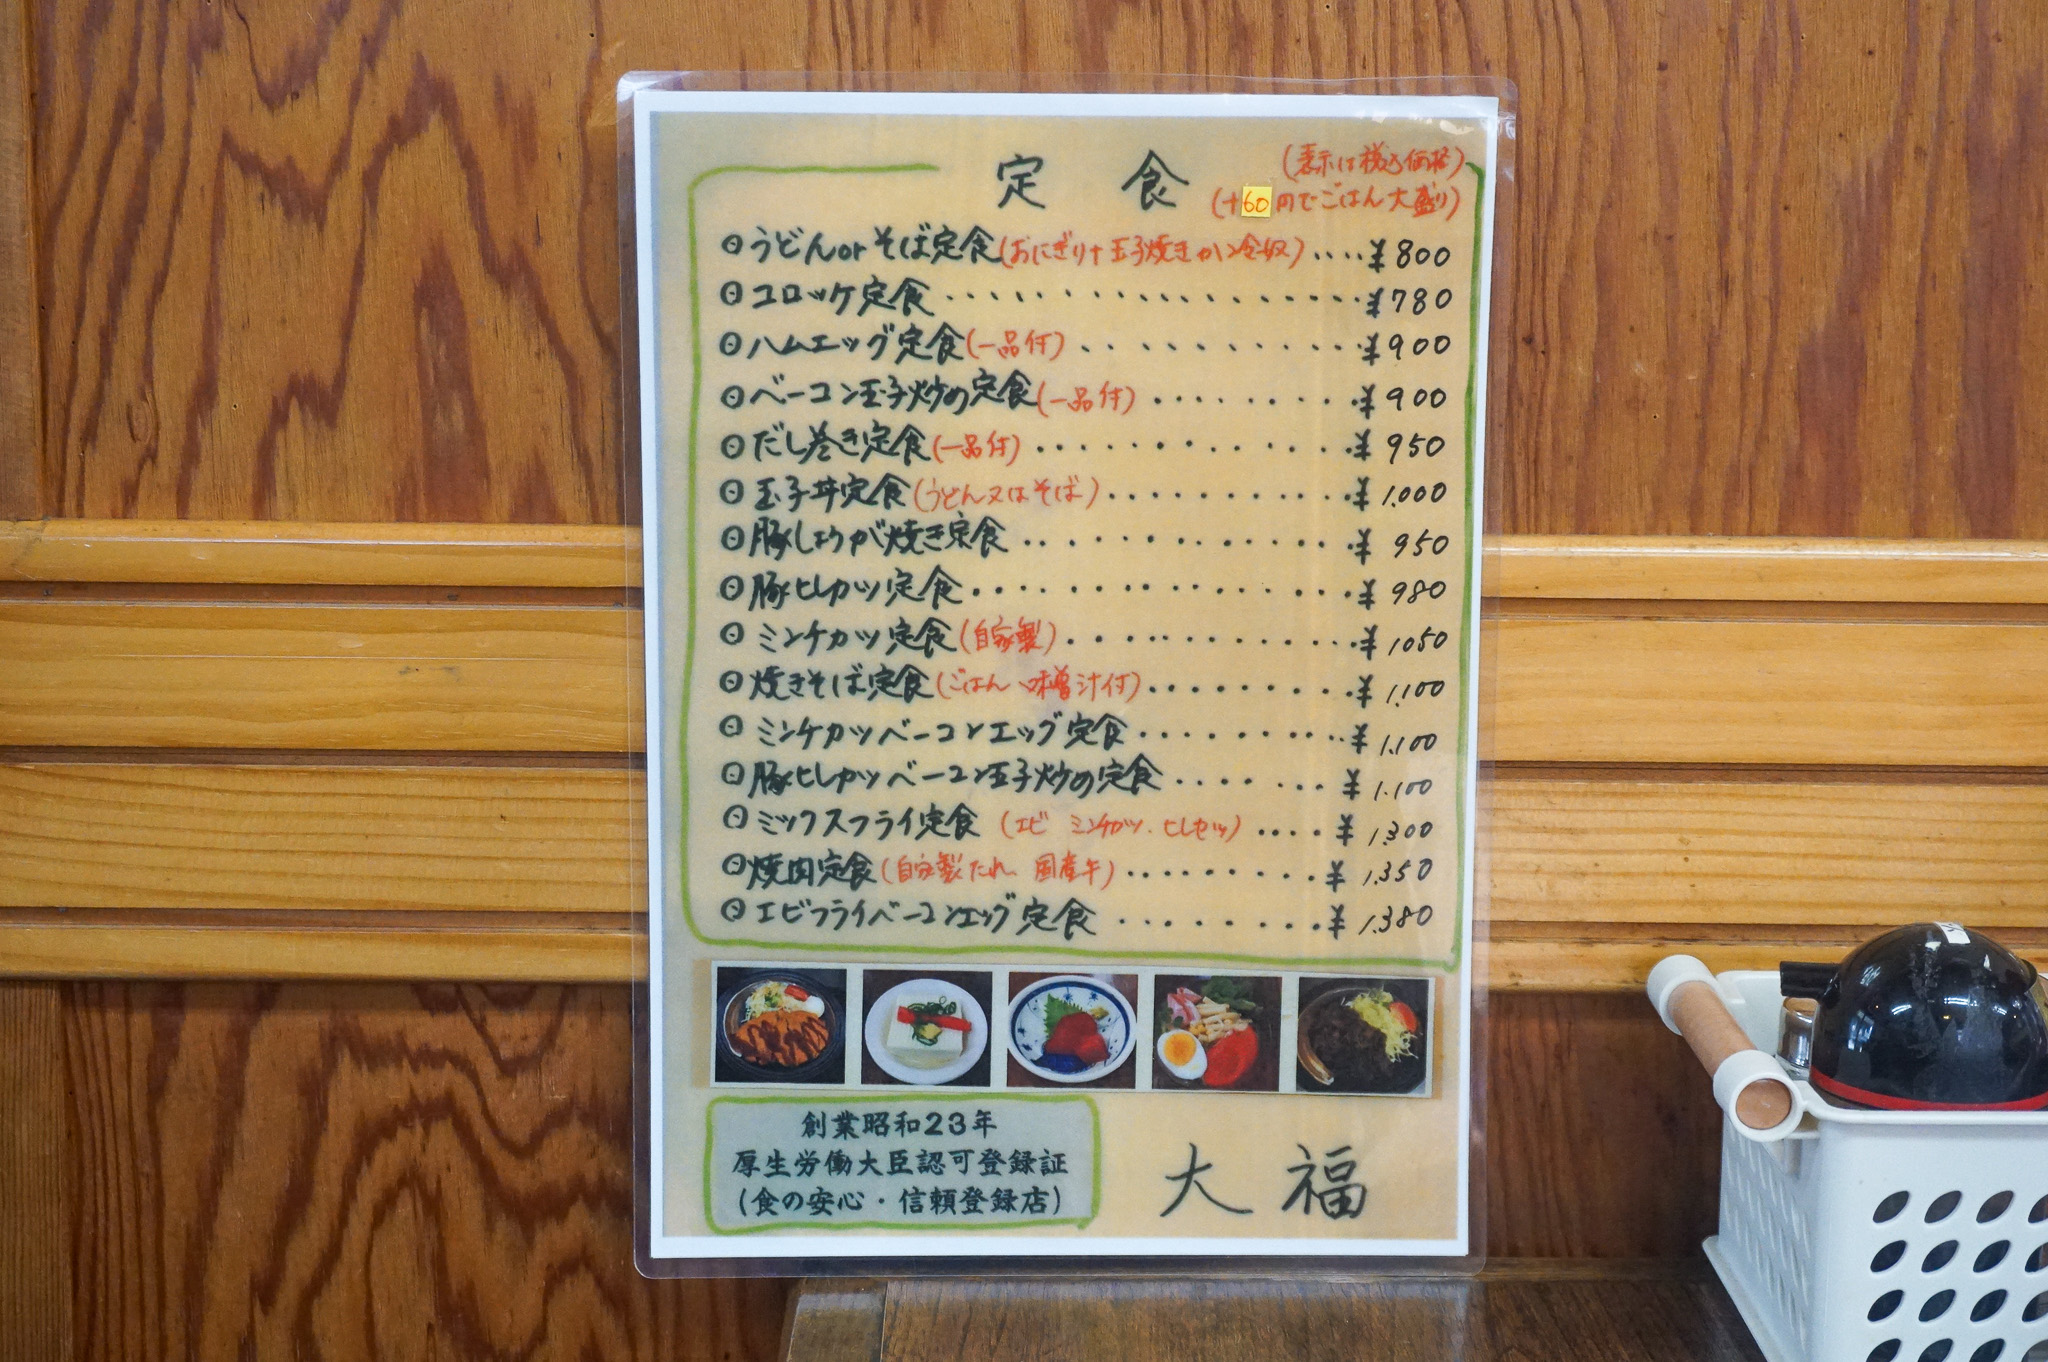 定食
(表示は税込価格)
(+60円でごはん大盛り)
うどんorそば定食(おにぎり+玉子焼きか冷奴)....¥800
コロッケ定食..................¥780
ハムエッグ定食(一品付)............¥900
ベーコン玉子炒め定食(一品付).........¥900
だし巻き定食(一品付)............¥950
玉子丼定食(うどん又はそば)..........¥1.000
豚しょうが焼き定食.............¥950
豚ヒレカツ定食..............¥980
ミンチカツ定食(自家製)............¥1050
焼きそば定食(ごはん、味噌汁付)........¥1.100
ミンチカツベーコンエッグ定食..........¥1.100
豚ヒレカツベーコン玉子炒め定食.......¥1.100
ミックスフライ定食(エビ ミンチカツ.ヒレカツ)....¥1.300
焼肉定食(自家製たれ、国産牛).........¥1.350
エビフライベーコンエッグ定食........¥1.380
創業昭和23年
厚生労働大臣認可登録証
(食の安心・信頼登録店)
大福